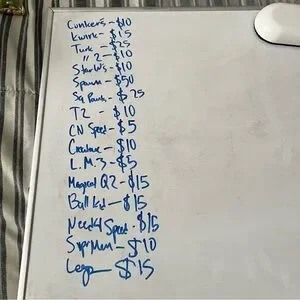 Conkers - $10
Kwirk - $15
Turok - $25
" 2 - $10
Star Wars - $10
Spawn - $50
Sq. Pants - $25
T2 - $10
CN Speed - $5
Creature - $10
L.M.3 - $5
Magical Q2 - $15
Ball Kid - $15
Need 4 Speed - $15
SuprMan - $10
Lego - $15